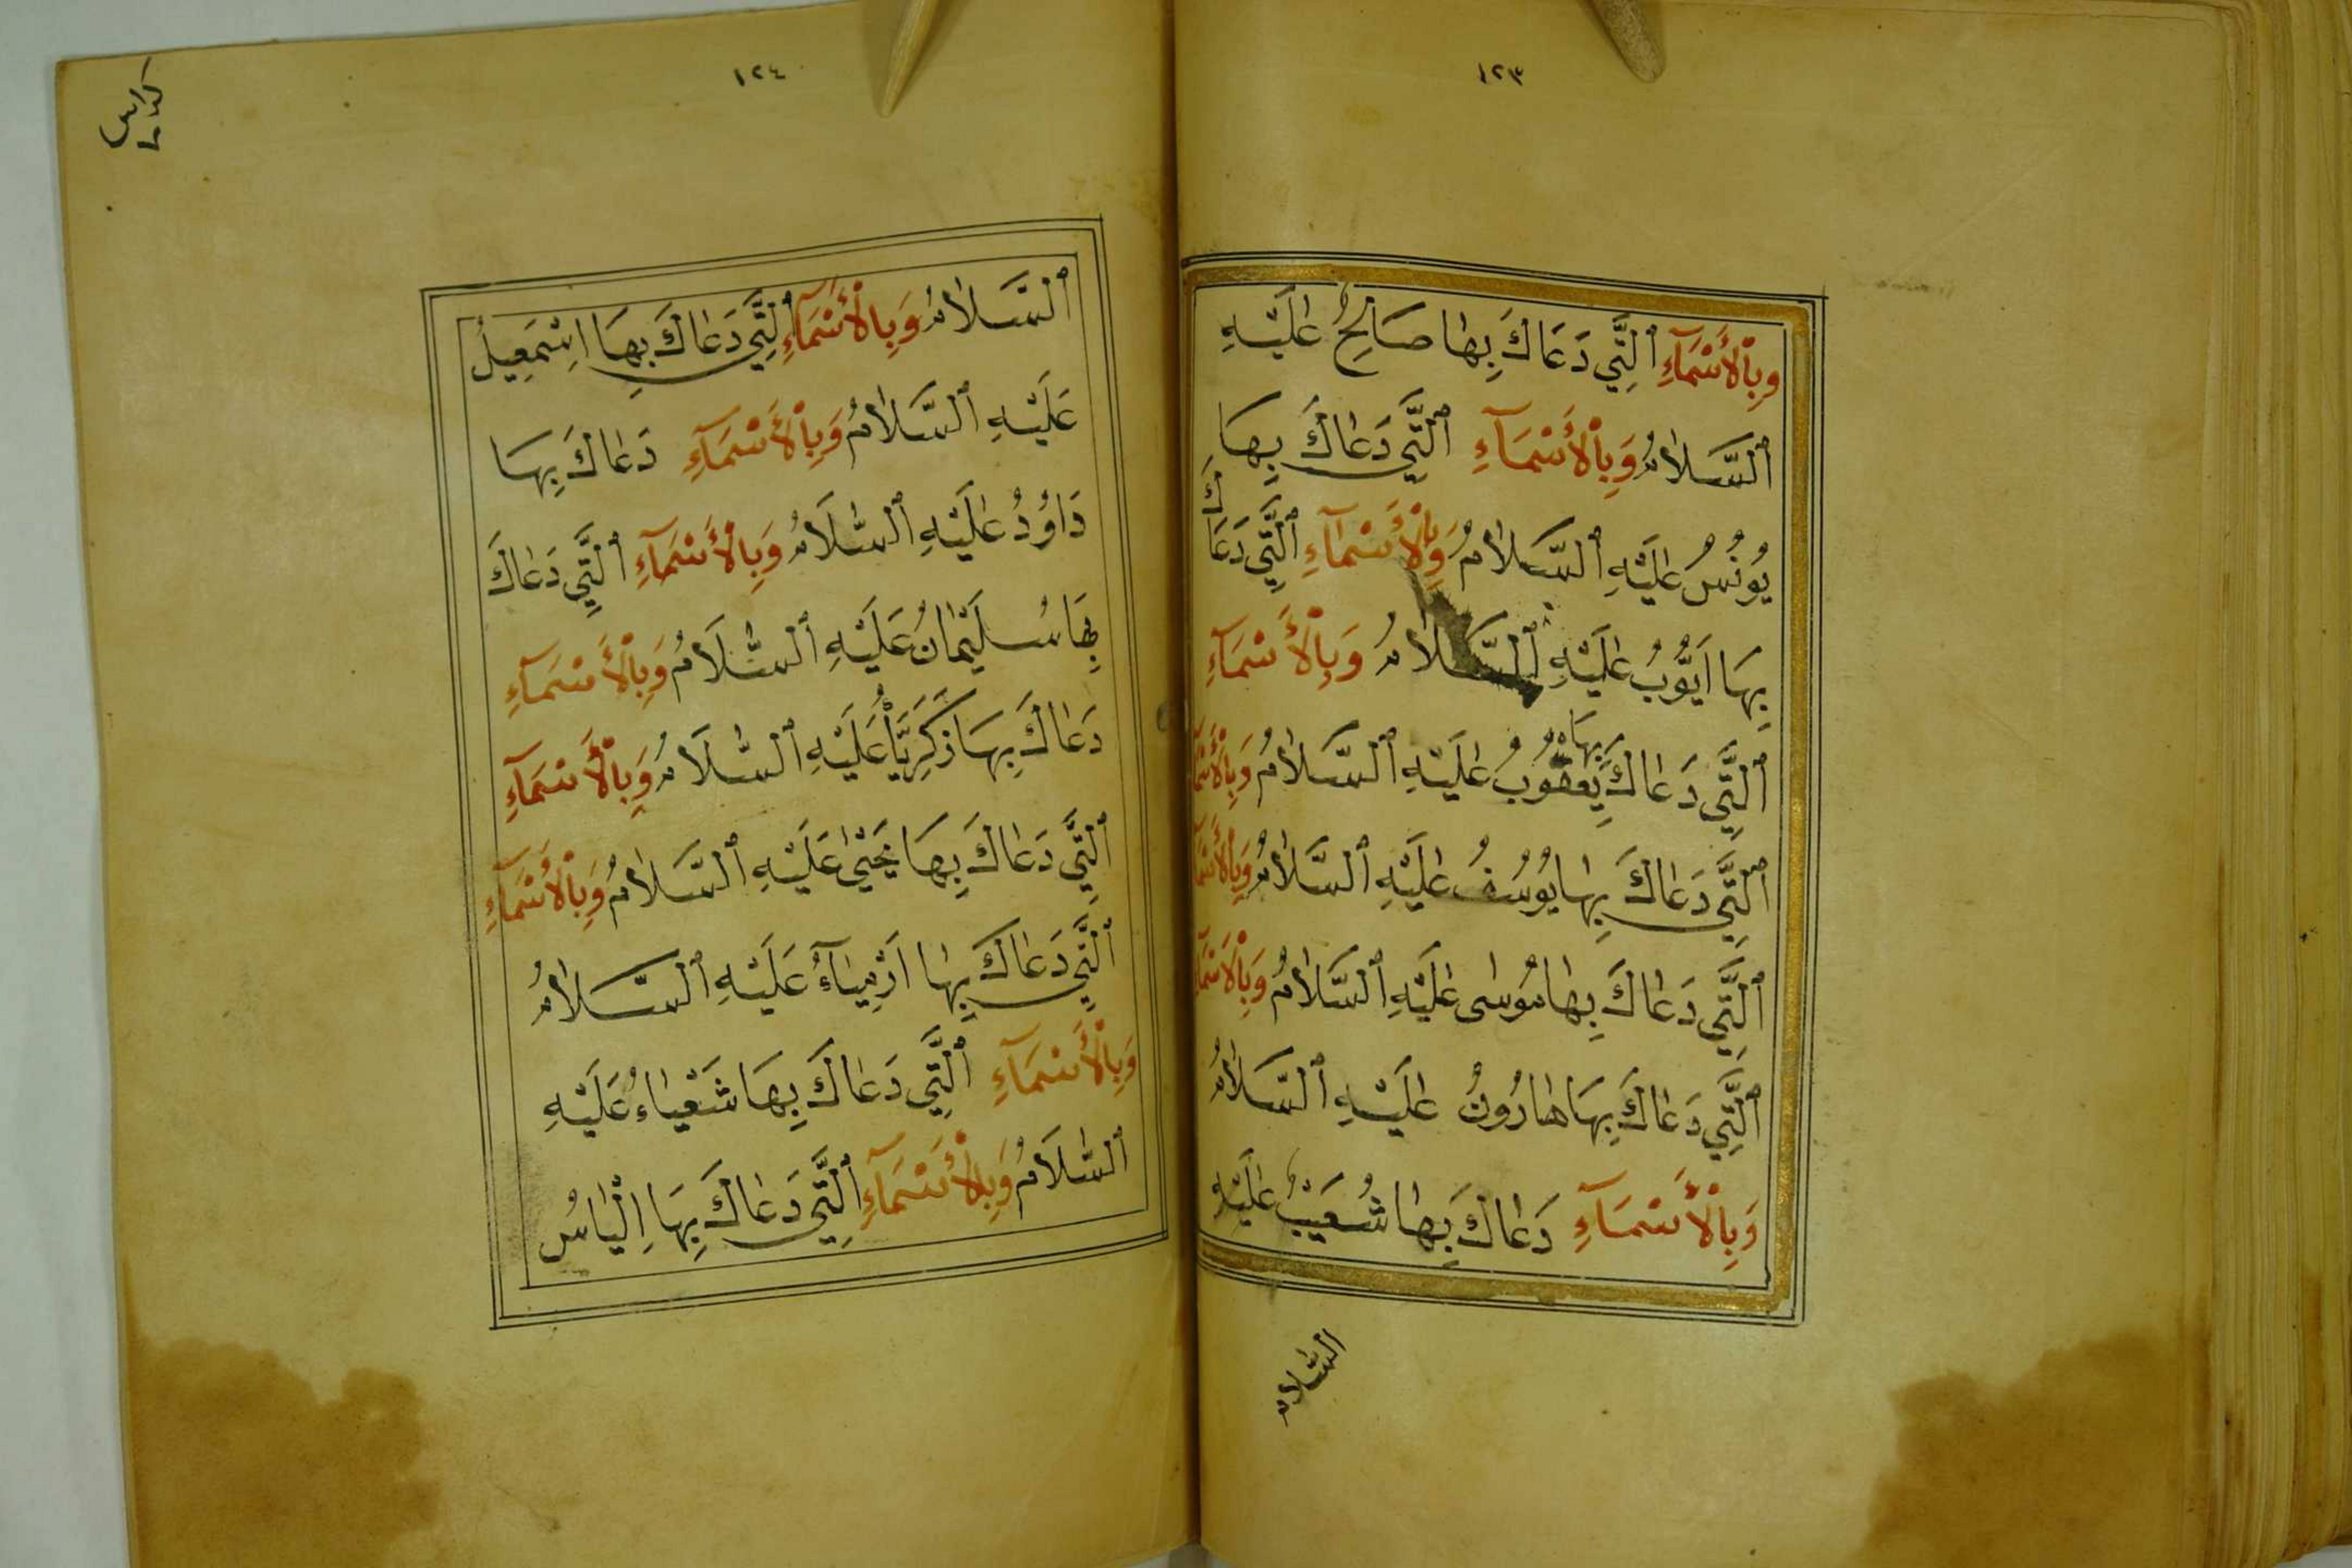 ١٢٣
وَبِالْأَسْمَآءِ ٱلَّتِي دَعَاكَ بِهَا صَالِحٌ عَلَيْهِ
ٱلسَّلَامُ وَبِالْأَسْمَآءِ ٱلَّتِي دَعَاكَ بِهَا
يُونُسُ عَلَيْهِ ٱلسَّلَامُ وَبِالْأَسْمَآءِ ٱلَّتِي دَعَاكَ
بِهَا اَيُّوبُ عَلَيْهِ ٱلسَّلَامُ وَبِالْأَسْمَآءِ
ٱلَّتِي دَعَاكَ بِهَا يَعْقُوبُ عَلَيْهِ ٱلسَّلَامُ وَبِالْأَسْمَا
ٱلَّتِي دَعَاكَ بِهَا يُوسُفُ عَلَيْهِ ٱلسَّلَامُ وَبِالْأَسْمَا
ٱلَّتِي دَعَاكَ بِهَا مُوسٰى عَلَيْهِ ٱلسَّلَامُ وَبِالْأَسْمَا
ٱلَّتِي دَعَاكَ بِهَا هَارُونُ عَلَيْهِ ٱلسَّلَامُ
وَبِالْأَسْمَآءِ دَعَاكَ بِهَا شُعَيْبٌ عَلَيْهِ
السَّلَامُ
١٢٤
ٱلسَّلَامُ وَبِالْأَسْمَآءِ ٱلَّتِي دَعَاكَ بِهَا اِسْمٰعِيلُ
عَلَيْهِ ٱلسَّلَامُ وَبِالْأَسْمَآءِ دَعَاكَ بِهَا
دَاوُدُ عَلَيْهِ ٱلسَّلَامُ وَبِالْأَسْمَآءِ ٱلَّتِي دَعَاكَ
بِهَا سُلَيْمَانُ عَلَيْهِ ٱلسَّلَامُ وَبِالْأَسْمَآءِ
دَعَاكَ بِهَا زَكَرِيَّاُ عَلَيْهِ ٱلسَّلَامُ وَبِالْأَسْمَآءِ
ٱلَّتِي دَعَاكَ بِهَا يَحْيٰى عَلَيْهِ ٱلسَّلَامُ وَبِالْأَسْمَآءِ
ٱلَّتِي دَعَاكَ بِهَا اَرْمِيَآءُ عَلَيْهِ ٱلسَّلَامُ
وَبِالْأَسْمَآءِ ٱلَّتِي دَعَاكَ بِهَا شَعْيَاءُ عَلَيْهِ
ٱلسَّلَامُ وَبِالْأَسْمَآءِ ٱلَّتِي دَعَاكَ بِهَا اِلْيَاسُ